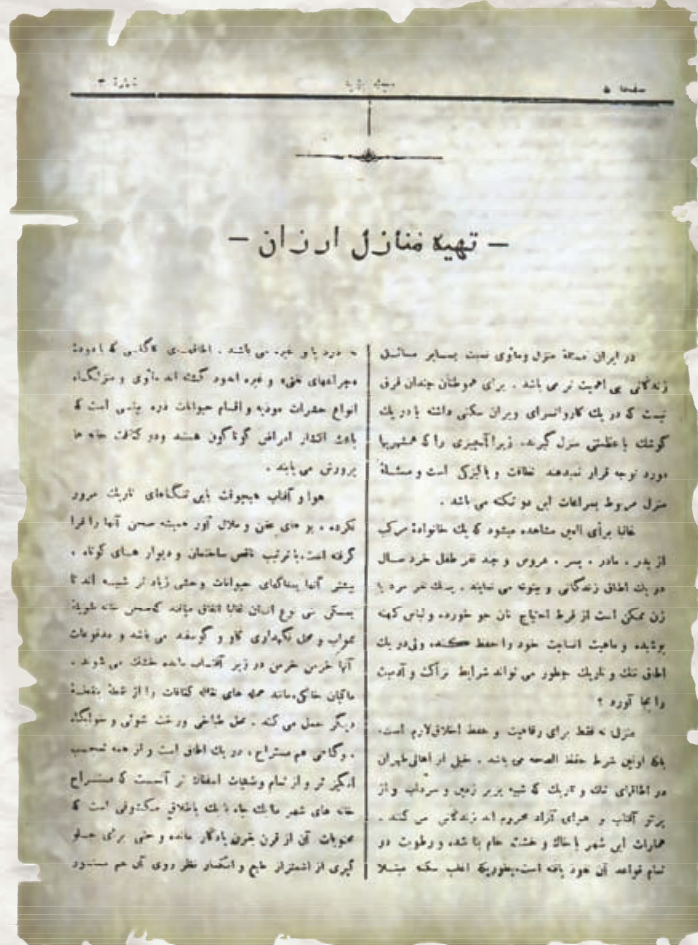 صفحه ۵
شماره ۳
– تهیه منازل ارزان –
در ایران مسئلهٔ منزل و مأوی نسبت بسایر مسائل
زندگانی بی اهمیت تر می باشد . برای هموطنان چندان فرق
نیست که در یك کاروانسرای ویران سکنی داشته یا در یك
کوشك با عظمتی منزل گیرند. زیرا آنچیزی را که همشهریها
مورد توجه قرار نمیدهند نظافت و پاکیزگی است و مسئلهٔ
منزل مربوط بمراعات این دو نکته می باشد .
غالبا برأی العین مشاهده میشود که یك خانوادهٔ مرکب
از پدر ، مادر ، پسر ، عروس و چند نفر طفل خرد سال
در یك اطاق زندگانی و بیتوته می نمایند . یك نفر مرد یا
زن ممکن است از فرط احتیاج نان جو خورده و لباس کهنه
پوشیده و ماهیت انسانیت خود را حفظ کند، ولی در یك
اطاق تنك و تاریك چطور می تواند شرایط نزاکت و آدمیت
را بجا آورد ؟
منزل نه فقط برای رفاهیت و حفظ اخلاق لازم است،
بلکه اولین شرط حفظ الصحه می باشد . خیلی از اهالی طهران
در اطاقهای تنك و تاریك که شبیه بزیر زمین و سرداب و از
پرتو آفتاب و هوای آزاد محروم اند زندگانی می کنند .
عمارات این شهر با خاك و خشت خام بنا شده و رطوبت در
تمام قواعد آن نفوذ یافته است، بطوریکه اغلب سکنه مبتلا
به درد پا و غیره می باشند . اطاقهای کاگلی که با دودهٔ
چراغهای نفتی و غیره اندود گشته اند مأوی و منزلگاه
انواع حشرات موذیه و اقسام حیوانات ذره بینی است که
باعث انتشار امراض گوناگون هستند و در کثافت خانه ها
پرورش می یابند .
هوا و آفتاب هیچوقت باین تنگناهای تاریك مرور
نکرده ، بو های عفن و ملال آور همیشه صحن آنها را فرا
گرفته است، با ترتیب ناقص ساختمان و دیوار های کوتاه ،
بیشتر آنها بمسکنهای حیوانات وحشی زیاد تر شبیه اند تا
بمسکن بنی نوع انسان غالبا اتفاق میافتد که صحن خانه طویلهٔ
دواب و محل نگهداری گاو و گوسفند می باشد و مدفوعات
آنها خرمن خرمن در زیر آفتاب مانده خشك می شوند .
ماکیان خانگی مانند عمله های نقاله کثافات را از نقطهٔ بنقطهٔ
دیگر حمل می کنند . محل طباخی و رخت شوئی و خوابگاه
، و گاهی هم مستراح ، در یك اطاق است و از همه تعجب
انگیز تر و از تمام وضعیات اسفناك تر آنست که مستراح
خانه های شهر ما یك چاه یا یك باطلاق مکشوفی است که
محتویات آن از قرن بقرن یادگار مانده و حتی برای جلو
گیری از اشمئزاز طبع و انکسار نظر روی آن هم مستور